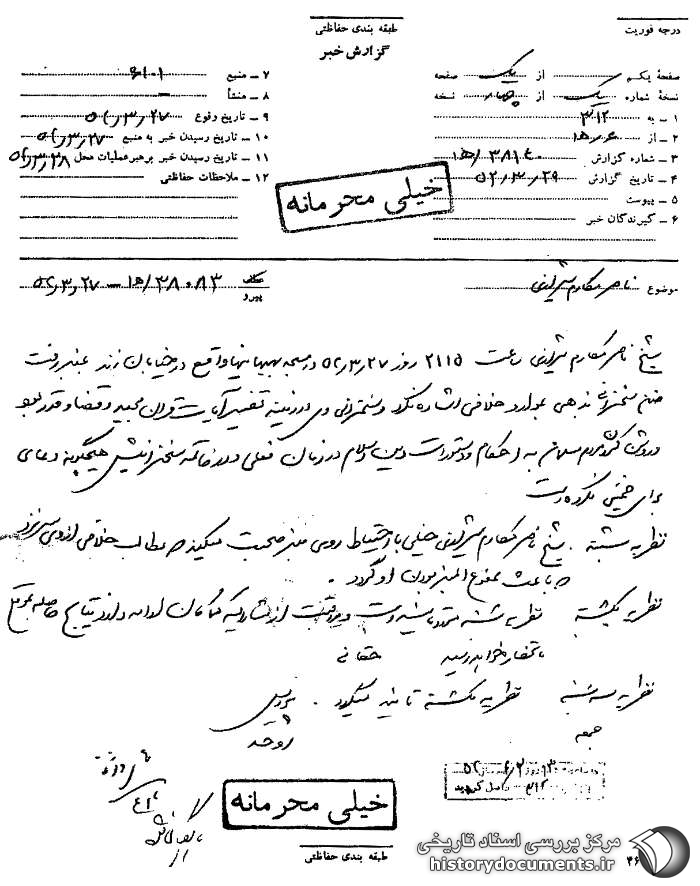 درجه فوریت
طبقه بندی حفاظتی
گزارش خبر
صفحهٔ یکم از یک صفحه
نسخهٔ شماره یک از چهار نسخه
۱ - به ۳۱۲
۲ - از ۶ / ه‍ ۱
۳ - شماره گزارش ۳۸۱۴۰ / ه‍ ۱
۴ - تاریخ گزارش ۵۲/۳/۲۹
۵ - پیوست
۶ - گیرندگان خبر
۷ - منبع ۶۱۰۱
۸ - منشأ -
۹ - تاریخ وقوع ۵۲/۳/۲۷
۱۰ - تاریخ رسیدن خبر به منبع ۵۲/۳/۲۷
۱۱ - تاریخ رسیدن خبر برهبرعملیات محل ۵۲/۳/۲۸
۱۲ - ملاحظات حفاظتی
خیلی محرمانه
موضوع ناصر مکارم شیرازی
پیرو ۳۸۰۸۳ / ه‍ ۱ - ۵۲/۳/۲۷
شیخ ناصر مکارم شیرازی ساعت ۲۱۱۵ روز ۵۲/۳/۲۷ در مسجد بهبهانیها واقع در خیابان زند بمنبر رفت
ضمن سخنرانی مذهبی بموارد خلافی اشاره نکرد و سخنرانی وی در زمینه تفسیر آیات قران مجید و قضا و قدر بود
و روشن کردن مردم مسلمان به احکام و دستورات دین اسلام در زمان فعلی و در خاتمه سخنرانیش هیچگونه دعای
برای خمینی نکرده است
نظریه شنبه . شیخ ناصر مکارم شیرازی خیلی با احتیاط روی منبر صحبت میکند که مطالب خلافی از وی سر نزند
که باعث ممنوع المنبر بودن او گردد .
نظریه یکشنبه نظریه شنبه مورد تایید است و مراقبت از مشارالیه کماکان ادامه دارد نتایج حاصله بموقع
باستحضار خواهد رسید حقانی
نظریه سه شنبه نظریه یکشنبه تایید میگردد .
جمعه
خیلی محرمانه
طبقه بندی حفاظتی
مرکز بررسی اسناد تاریخی
historydocuments.ir